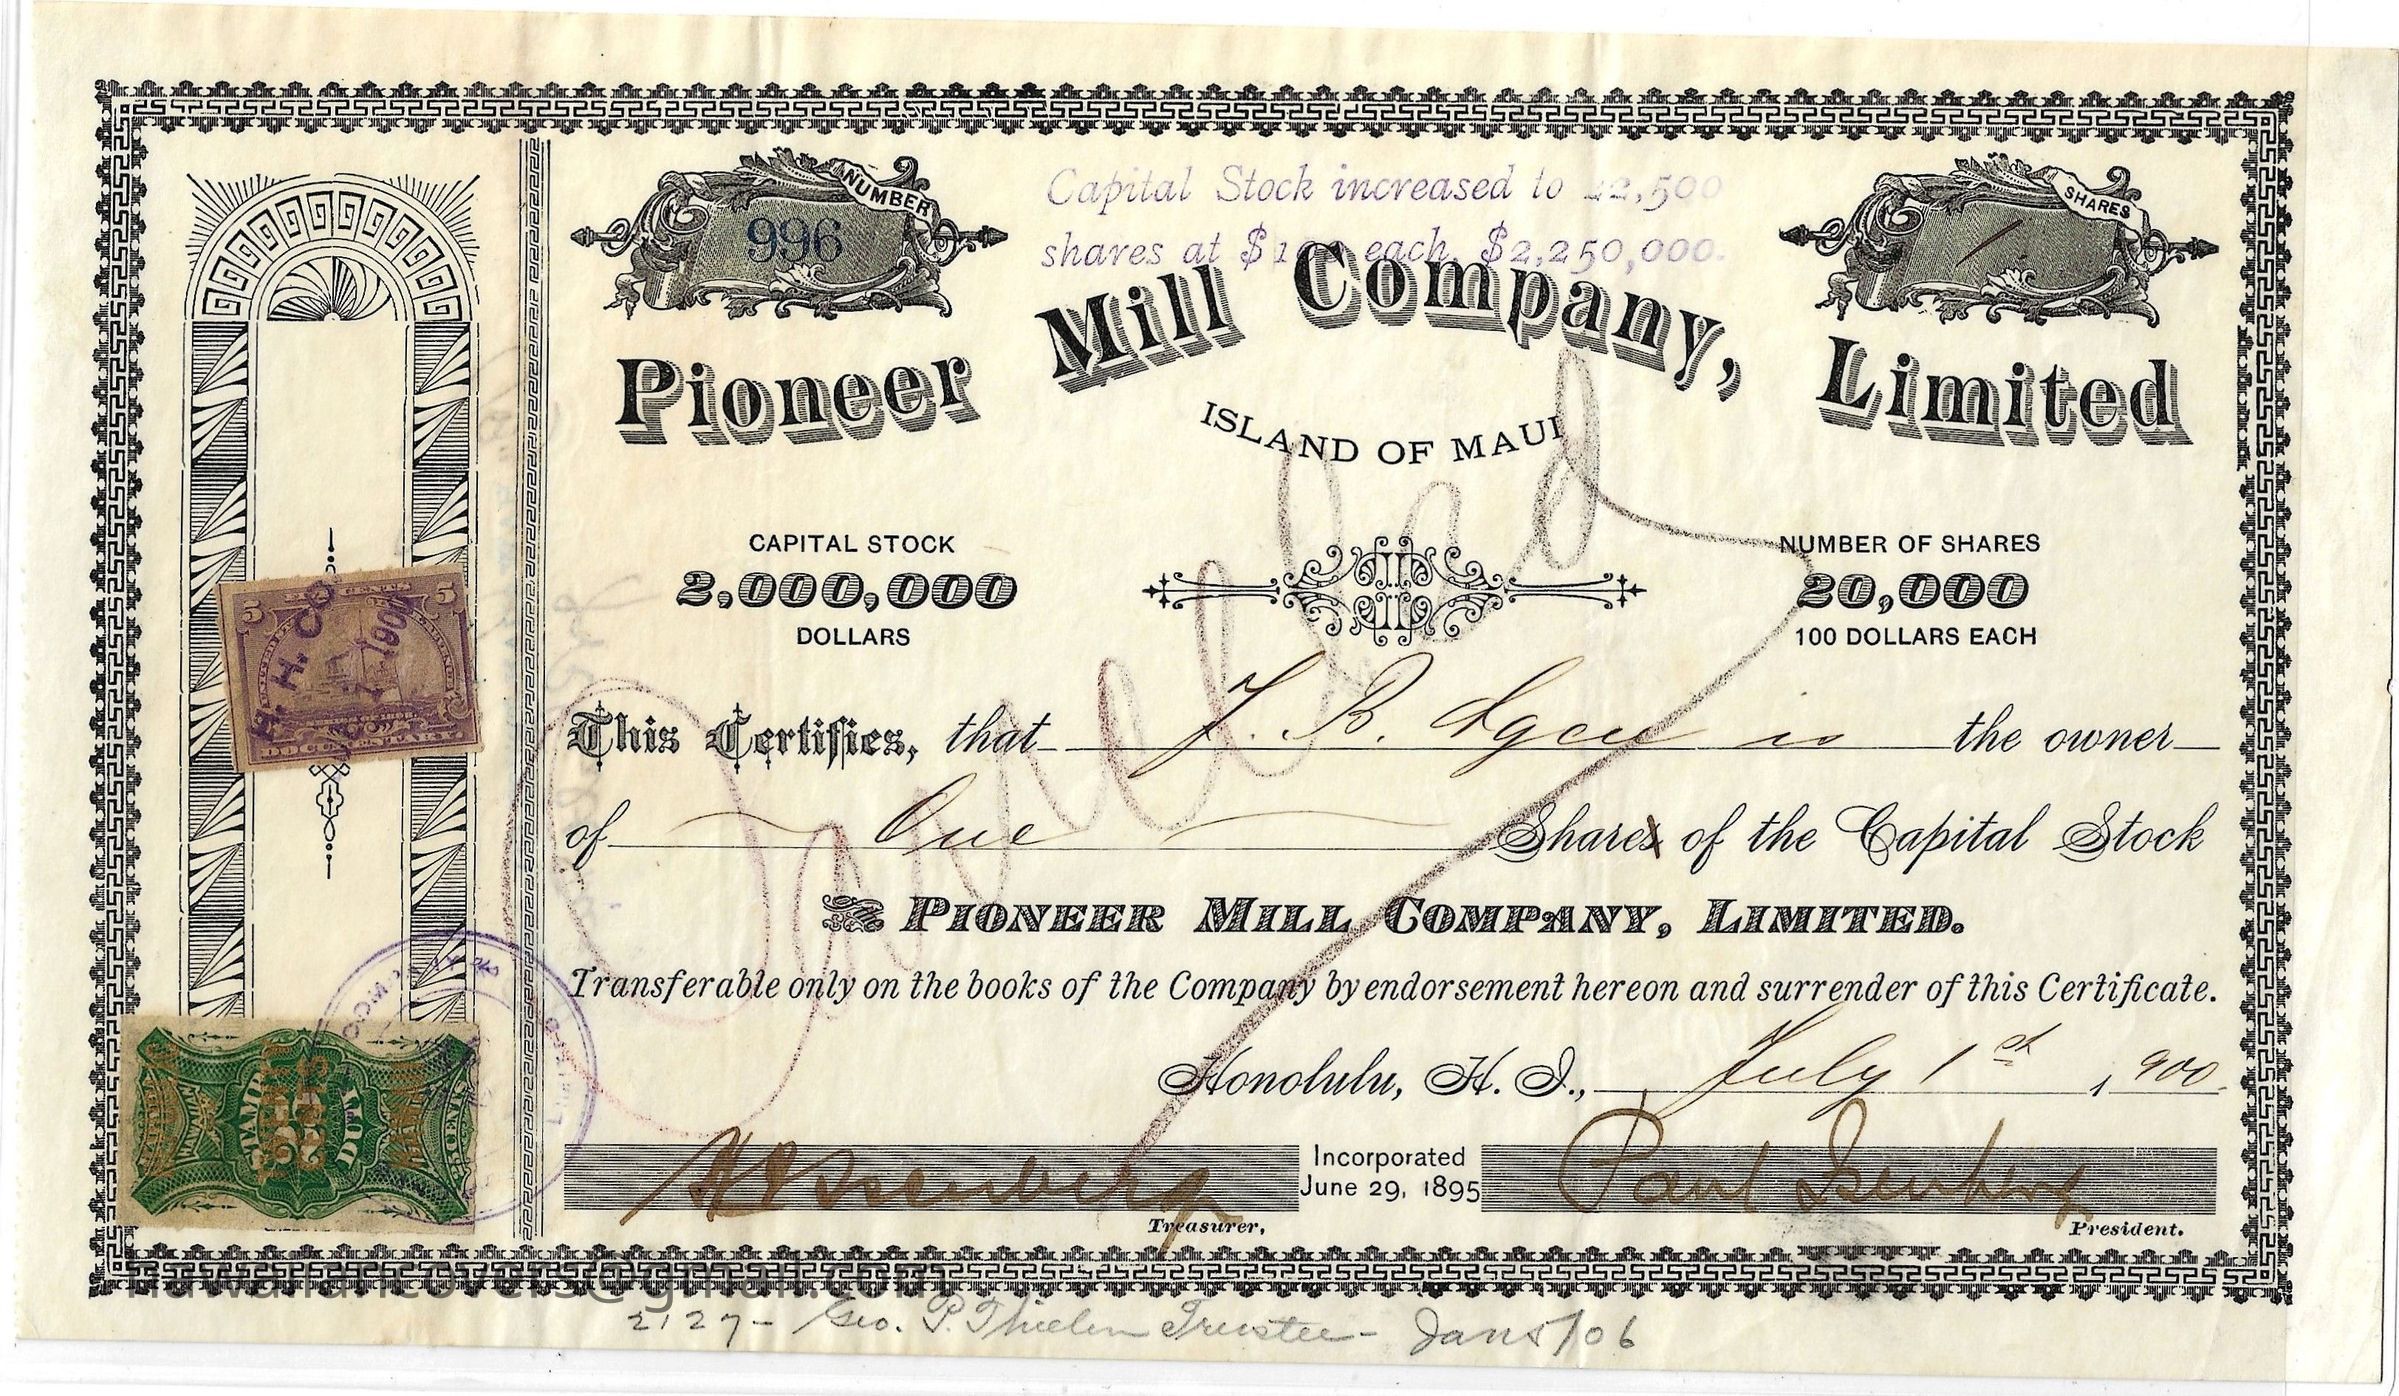 NUMBER
996
Capital Stock increased to 22,500
shares at $100 each, $2,250,000.
SHARES
1
Pioneer Mill Company, Limited
ISLAND OF MAUI
CAPITAL STOCK
2,000,000
DOLLARS
NUMBER OF SHARES
20,000
100 DOLLARS EACH
Cancelled
5 FIVE CENTS 5
H. H. CO.
1900
DOCUMENTARY
This Certifies, that F. B. is the owner
of One Shares of the Capital Stock
of the PIONEER MILL COMPANY, LIMITED.
Transferable only on the books of the Company by endorsement hereon and surrender of this Certificate.
Honolulu, H. I., July 1st 1900
STAMP DUTY
Incorporated
June 29, 1895
Paul Isenberg
Treasurer,
President.
hawaiiancovers@gmail.com
2127 - Geo. P. Thielen Trustee - Jan 5/06